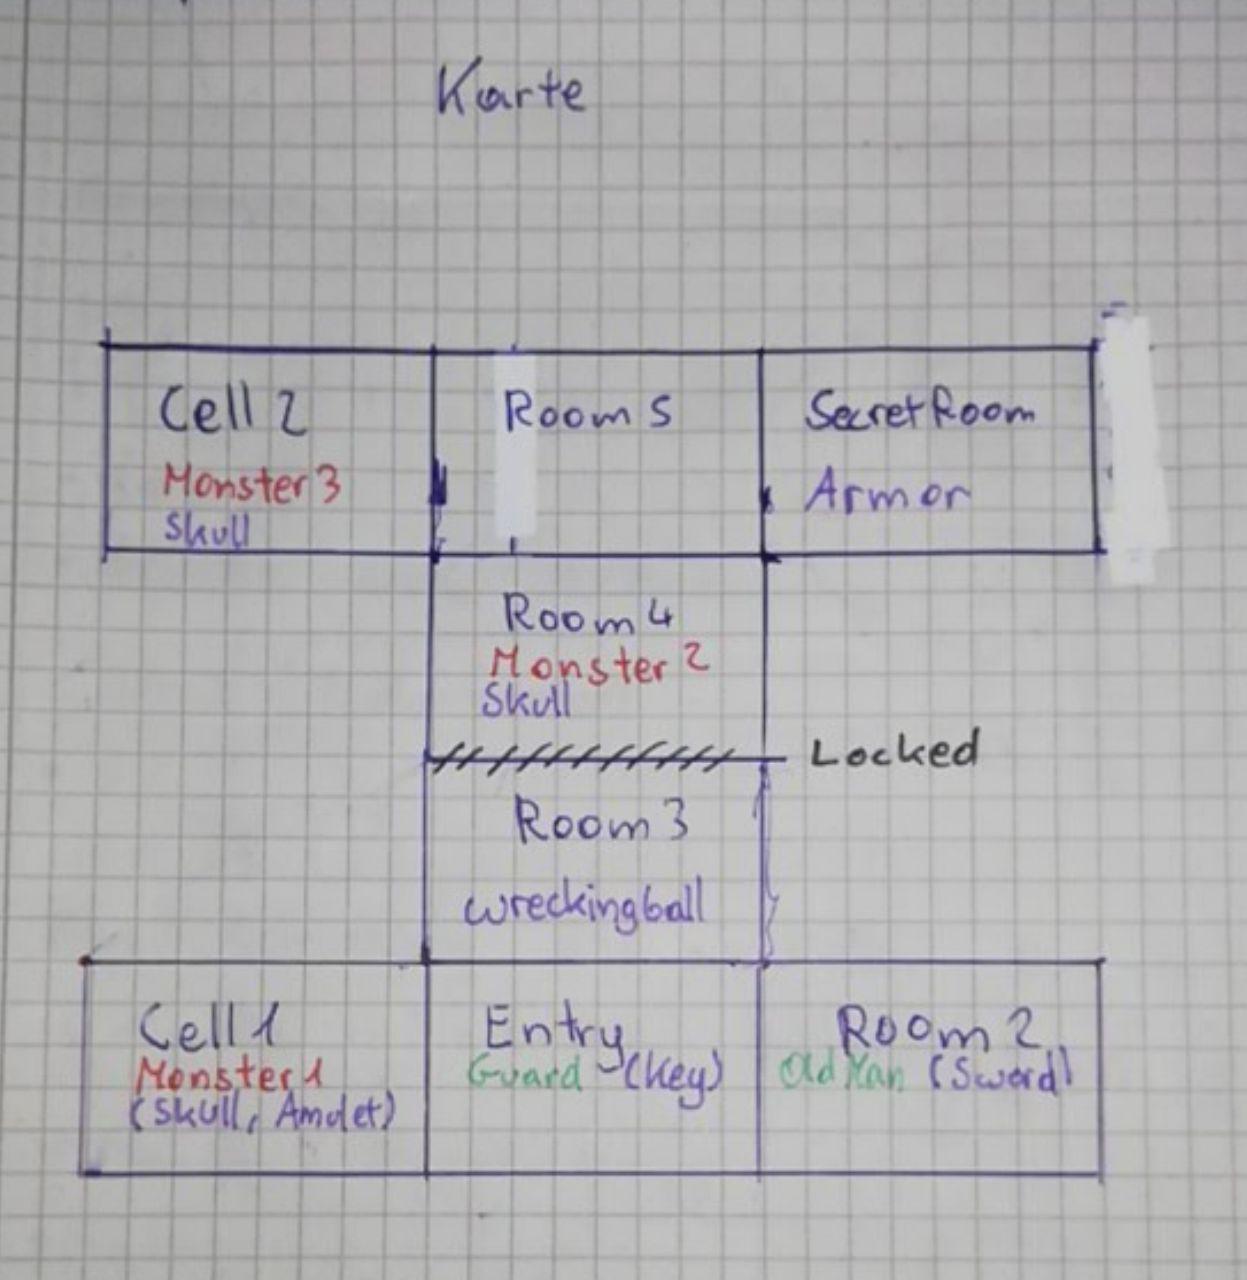 Karte
Cell 2
Monster 3
Skull
Room 5
Secret Room
Armor
Room 4
Monster 2
Skull
Locked
Room 3
wreckingball
Cell 1
Monster 1
(Skull, Amulet)
Entry
Guard -(Key)
Room 2
Old Man (Sword)